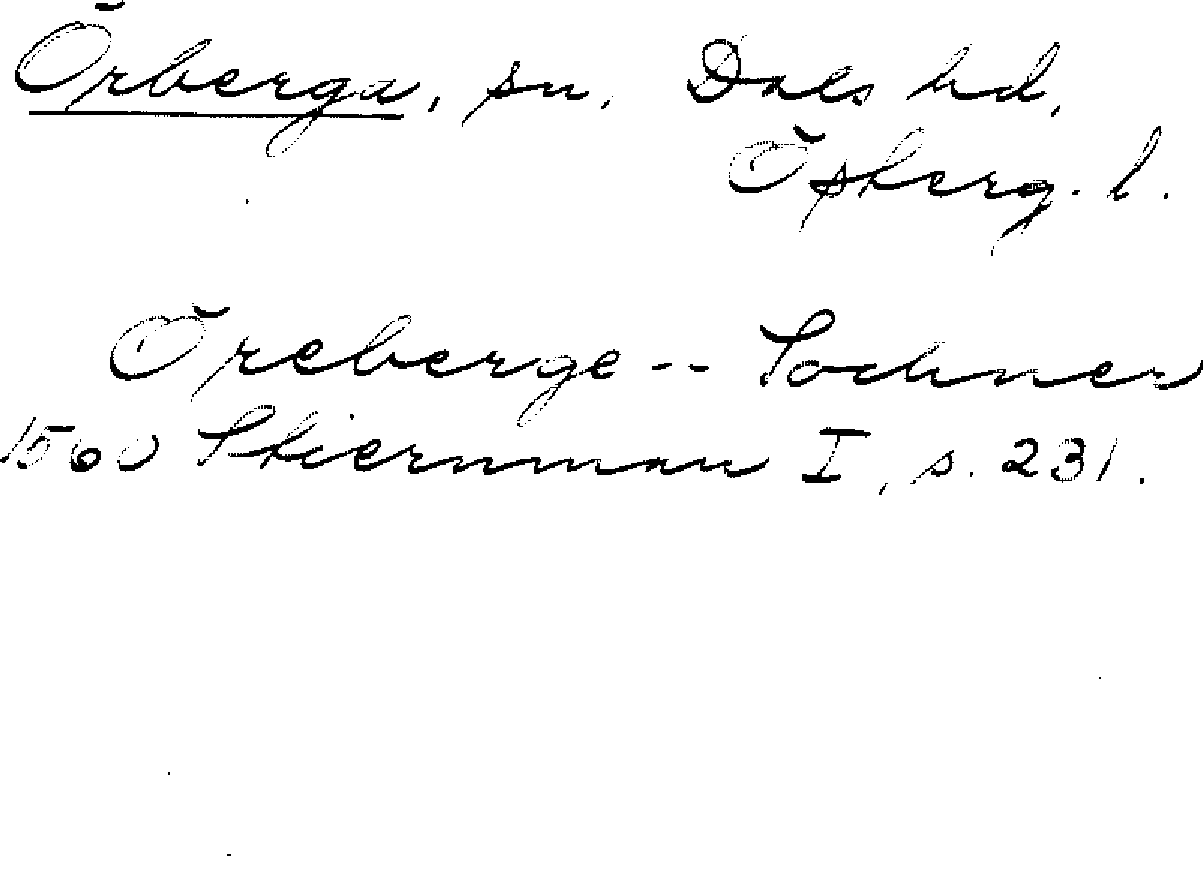 Örberga, sn, Dals hd,
Österg. l.
Öreberge -- Sochner
1560 Stiernman I, s. 231.